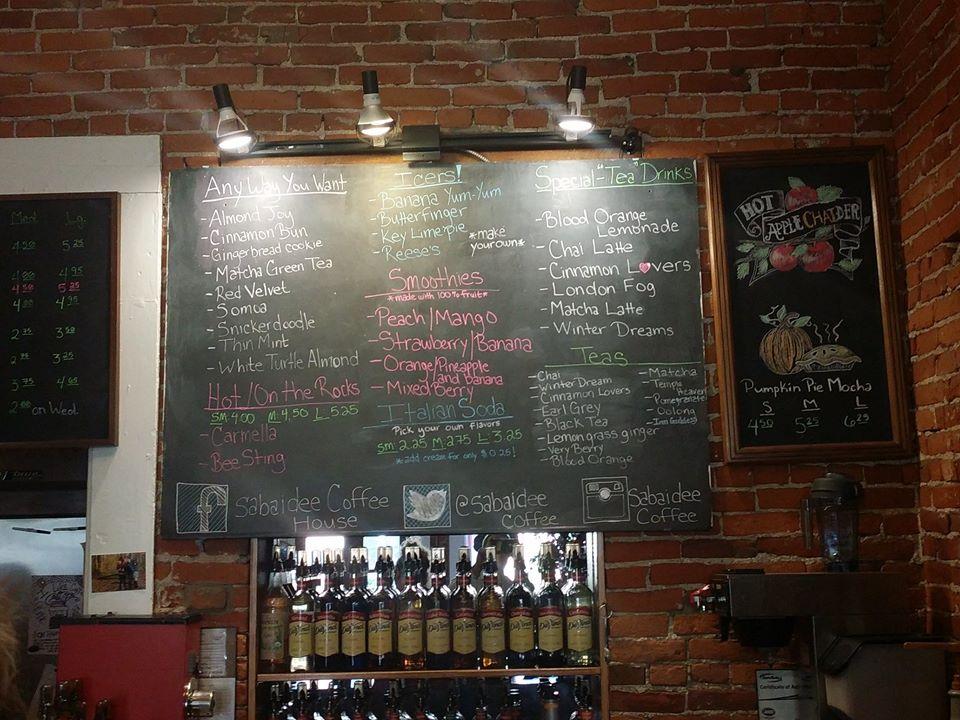 Med Lg.
4.50 5.25
4.00 4.95
4.50 5.25
4.00 4.95
3.50
3.25
3.75 4.65
on Wed.
Any Way You Want
- Almond Joy
- Cinnamon Bun
- Gingerbread cookie
- Matcha Green Tea
- Red Velvet
- Somoa
- Snickerdoodle
- Thin Mint
- White Turtle Almond
Hot/On the Rocks
Sm. 4.00 M: 4.50 L: 5.25
- Carmella
- Bee Sting
Icers!
- Banana Yum-Yum
- Butterfinger
- Key Lime pie
- Reese's
*make your own*
Smoothies
*made with 100% fruit*
- Peach/Mango
- Strawberry/Banana
- Orange/Pineapple
and banana
- Mixed Berry
Italian Soda
Pick your own flavors
Sm: 2.25 M: 2.75 L: 3.25
*add cream for only $0.25!
Special-"Tea" Drinks
- Blood Orange
Lemonade
- Chai Latte
- Cinnamon Lovers
- London Fog
- Matcha Latte
- Winter Dreams
Teas
- Chai
- Winter Dream
- Cinnamon Lovers
- Earl Grey
- Black Tea
- Lemongrass ginger
- Very Berry
- Blood Orange
- Matcha
- Temple Heaven
- Pomegranate
- Oolong
- Iron Goddess
f Sabaidee Coffee
House
@Sabaidee
Coffee
Sabaidee
Coffee
HOT
APPLE CHAIDER
Pumpkin Pie Mocha
S M L
4.50 5.25 6.25